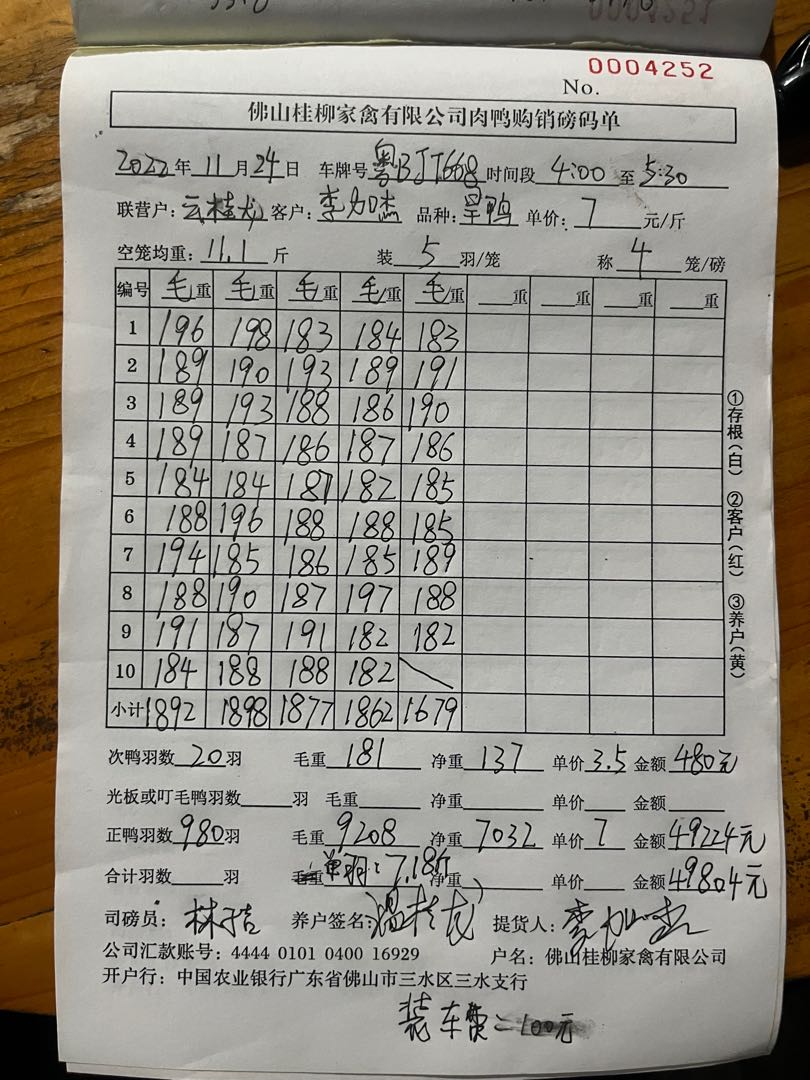 0004251
0004252
No.
佛山桂柳家禽有限公司肉鸭购销磅码单
2022年11月24日 车牌号粤BJT668时间段4:00至5:30
联营户:云桂龙客户:李加杰 品种:旱鸭 单价:7元/斤
空笼均重:11.1斤 装5羽/笼 称4笼/磅
编号 毛重 毛重 毛重 毛重 毛重 重 重 重 重
1 196 198 183 184 183
2 189 190 193 189 191
3 189 193 188 186 190
4 189 187 186 187 186
5 184 184 187 182 185
6 188 196 188 188 185
7 194 185 186 185 189
8 188 190 187 197 188
9 191 187 191 182 182
10 184 188 188 182
小计 1892 1898 1877 1862 1679
①存根(白) ②客户(红) ③养户(黄)
次鸭羽数20羽 毛重181 净重137 单价3.5 金额480元
光板或叮毛鸭羽数 羽 毛重 净重 单价 金额
正鸭羽数980羽 毛重9208 净重7032 单价7 金额49224元
合计羽数 羽 毛重 单羽:7.18斤 净重 单价 金额49804元
司磅员: 养户签名: 提货人:
公司汇款账号: 4444 0101 0400 16929 户名: 佛山桂柳家禽有限公司
开户行: 中国农业银行广东省佛山市三水区三水支行
装车费=100元